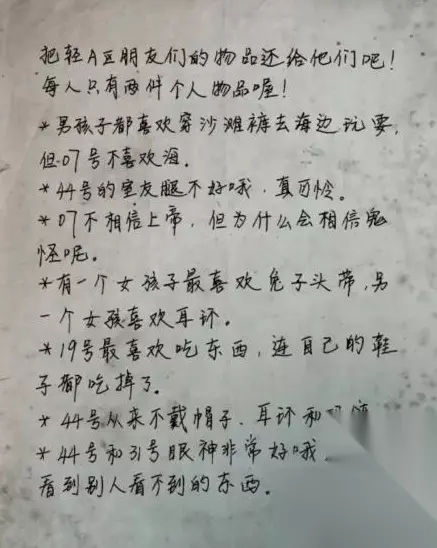 把轻A区朋友们的物品还给他们吧!
每人只有两件个人物品喔!
*男孩子都喜欢穿沙滩裤去海边玩耍,
但07号不喜欢海。
*44号的室友腿不好哦,真可怜。
*07不相信上帝,但为什么会相信鬼
怪呢。
*有一个女孩子最喜欢兔子头带,另
一个女孩喜欢耳环。
*19号最喜欢吃东西,连自己的鞋
子都吃掉了。
*44号从来不戴帽子、耳环和
*44号和31号眼神非常好哦,
看到别人看不到的东西。